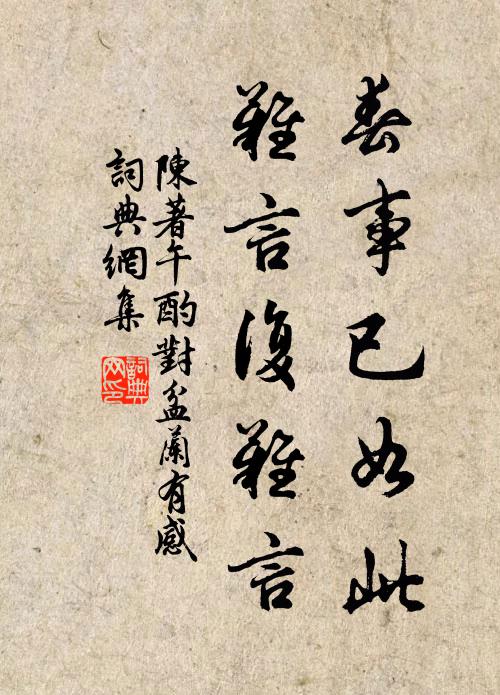 春事已如此
難言復難言
陳著午酌對盆蘭有感
詞典網集
詞典
網印